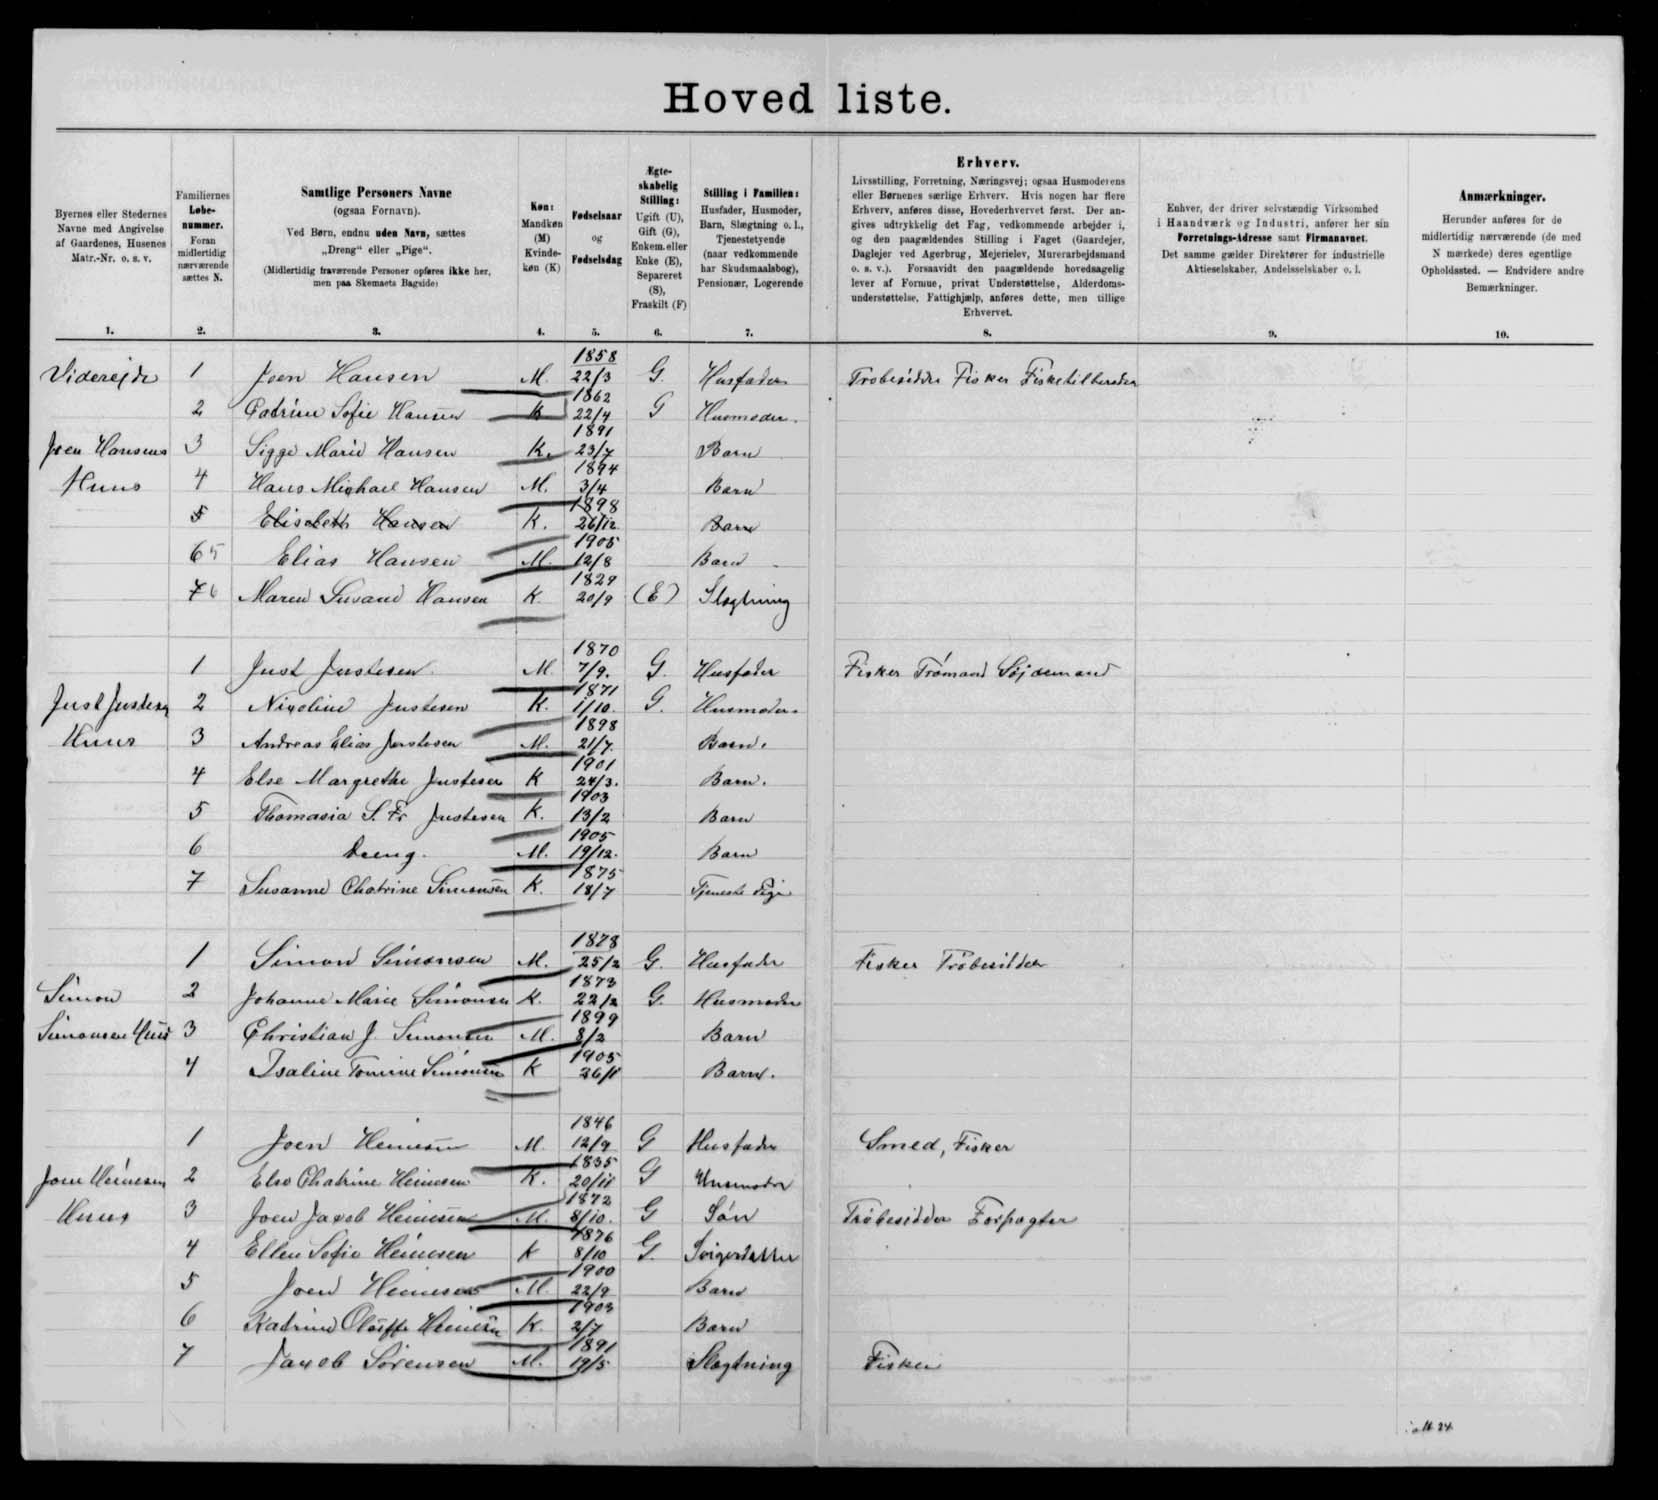 Hovedliste.
Byernes eller Stedernes Navne med Angivelse af Gaardenes, Husenes Matr.-Nr. o. s. v.
Familiernes Løbenummer. Foran midlertidig nærværende sættes N.
Samtlige Personers Navne (ogsaa Fornavn). Ved Børn, endnu uden Navn, sættes „Dreng“ eller „Pige“. (Midlertidig fraværende Personer opføres ikke her, men paa Skemaets Bagside)
Køn: Mandkøn (M) Kvindekøn (K)
Fødselsaar og Fødselsdag
Ægteskabelig Stilling: Ugift (U), Gift (G), Enkem. eller Enke (E), Separeret (S), Fraskilt (F)
Stilling i Familien: Husfader, Husmoder, Barn, Slægtning o. l., Tjenestetyende (naar vedkommende har Skudsmaalsbog), Pensionær, Logerende
Erhverv. Livsstilling, Forretning, Næringsvej; ogsaa Husmoderens eller Børnenes særlige Erhverv. Hvis nogen har flere Erhverv, anføres disse, Hovederhvervet først. Der angives udtrykkelig det Fag, vedkommende arbejder i, og den paagældendes Stilling i Faget (Gaardejer, Daglejer ved Agerbrug, Mejerielev, Murerarbejdsmand o. s. v.). Forsaavidt den paagældende hovedsagelig lever af Formue, privat Understøttelse, Alderdomsunderstøttelse, Fattighjælp, anføres dette, men tillige Erhvervet.
Enhver, der driver selvstændig Virksomhed i Haandværk og Industri, anfører her sin Forretnings-Adresse samt Firmanavnet. Det samme gælder Direktører for industrielle Aktieselskaber, Andelsselskaber o. l.
Anmærkninger. Herunder anføres for de midlertidig nærværende (de med N mærkede) deres egentlige Opholdssted. — Endvidere andre Bemærkninger.
1. 2. 3. 4. 5. 6. 7. 8. 9. 10.
Viderejde 1 Joen Hansen M. 1858 22/3 G. Husfader Trøbesidder Fisker Fisketilbereder
2 Catrine Sofie Hansen K 1862 22/4 G Husmoder.
Joen Hansens 3 Sigge Marie Hansen K. 1891 23/7 Barn
Huus 4 Hans Michael Hansen M. 1894 3/4 Barn
5 Elisabeth Hansen K. 1898 26/12. Barn
6 5 Elias Hansen M. 1905 12/8 Barn
7 6 Maren Susanne Hansen K. 1829 20/9 (E) Slægtning
1 Just Justesen M 1870 7/9. G. Husfader Fisker Trømand Søjdemand
Just Justesen 2 Nicoline Justesen K. 1871 1/10. G. Husmoder.
Huus 3 Andreas Elias Justesen M. 1898 21/7. Barn.
4 Else Margrethe Justesen K 1901 24/3. Barn.
5 Thomasia S. Fr Justesen K. 1903 13/2 Barn
6 Dreng. M. 1905 19/12. Barn
7 Susanne Chatrine Simonsen K. 1875 18/7 Tjeneste Pige
1 Simon Simonsen M. 1878 25/2 G. Husfader Fisker Trøbesidder
Simon 2 Johanne Marie Simonsen K. 1873 22/2 G. Husmoder
Simonsen Huus 3 Christian J. Simonsen M. 1899 8/2 Barn
4 Isaline Tomine Simonsen K 1905 26/11 Barn.
1 Joen Heinesen M. 1846 12/9 G Husfader Smed, Fisker
Joen Heinesen 2 Else Chatrine Heinesen K. 1835 20/11 G Husmoder
Huus 3 Joen Jacob Heinesen M. 1872 8/10. G Søn Trøbesidder Forpagter
4 Ellen Sofie Heinesen K 1876 8/10 G. Svigerdatter
5 Joen Heinesen M. 1900 22/9 Barn
6 Katrine Heinesen K. 1903 2/7 Barn
7 Jacob Sørensen M. 1891 19/5 Slægtning Fisker
ialt 24